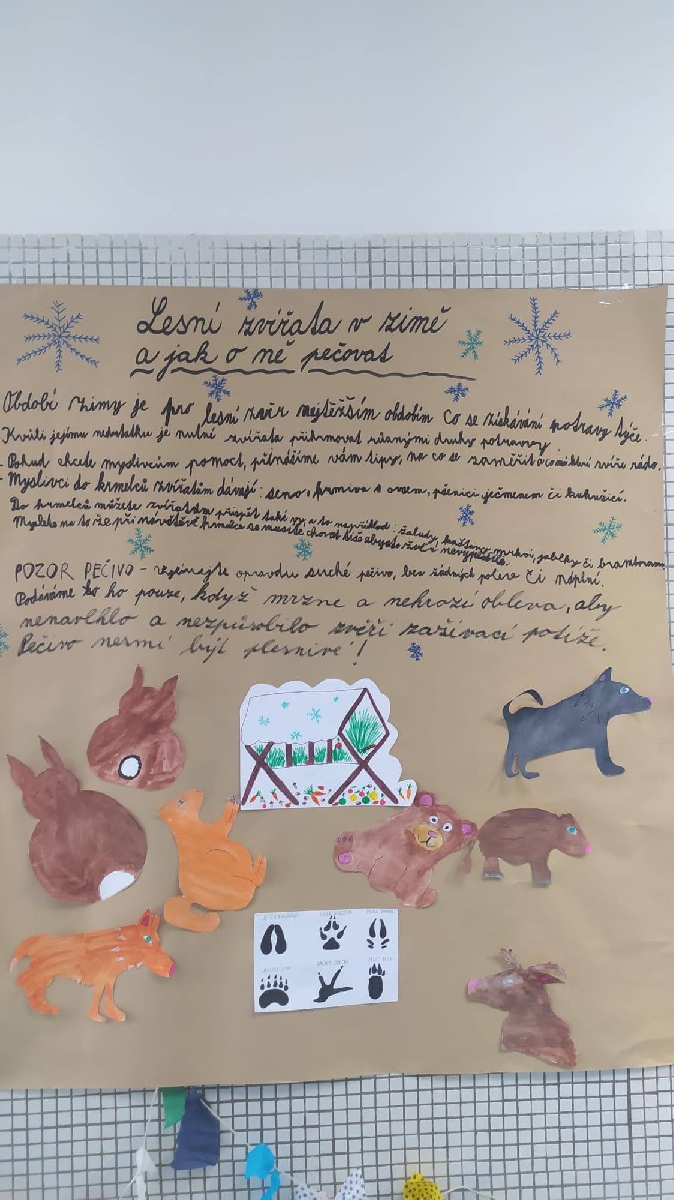 Lesní zvířata v zimě
a jak o ně pečovat
Období zimy je pro lesní zvěř nejtěžším obdobím co se získávání potravy týče.
Kvůli jejímu nedostatku je nutné zvířata přikrmovat různými druhy potravy.
- Pokud chcete myslivcům pomoct, přinášíme vám tipy, na co se zaměřit a co mlsní zvíře rádo.
- Myslivci do krmelců zvířatům dávají: seno, krmiva s ovsem, pšenicí ječmenem či kukuřicí.
Do krmelců můžete zvířatům přispět také vy a to například: žaludy, kaštany, mrkví, jablky či bramborami.
Myslete na to že při návštěvě krmelce se musíte chovat tiše abyste zvěř nevyplašili.
POZOR PEČIVO - opravdu suché pečivo, bez žádných polev či náplní.
Podáváme ho pouze, když mrzne a nehrozí obleva, aby
nenavlhlo a nezpůsobilo zvěři zažívací potíže.
Pečivo nesmí být plesnivé!